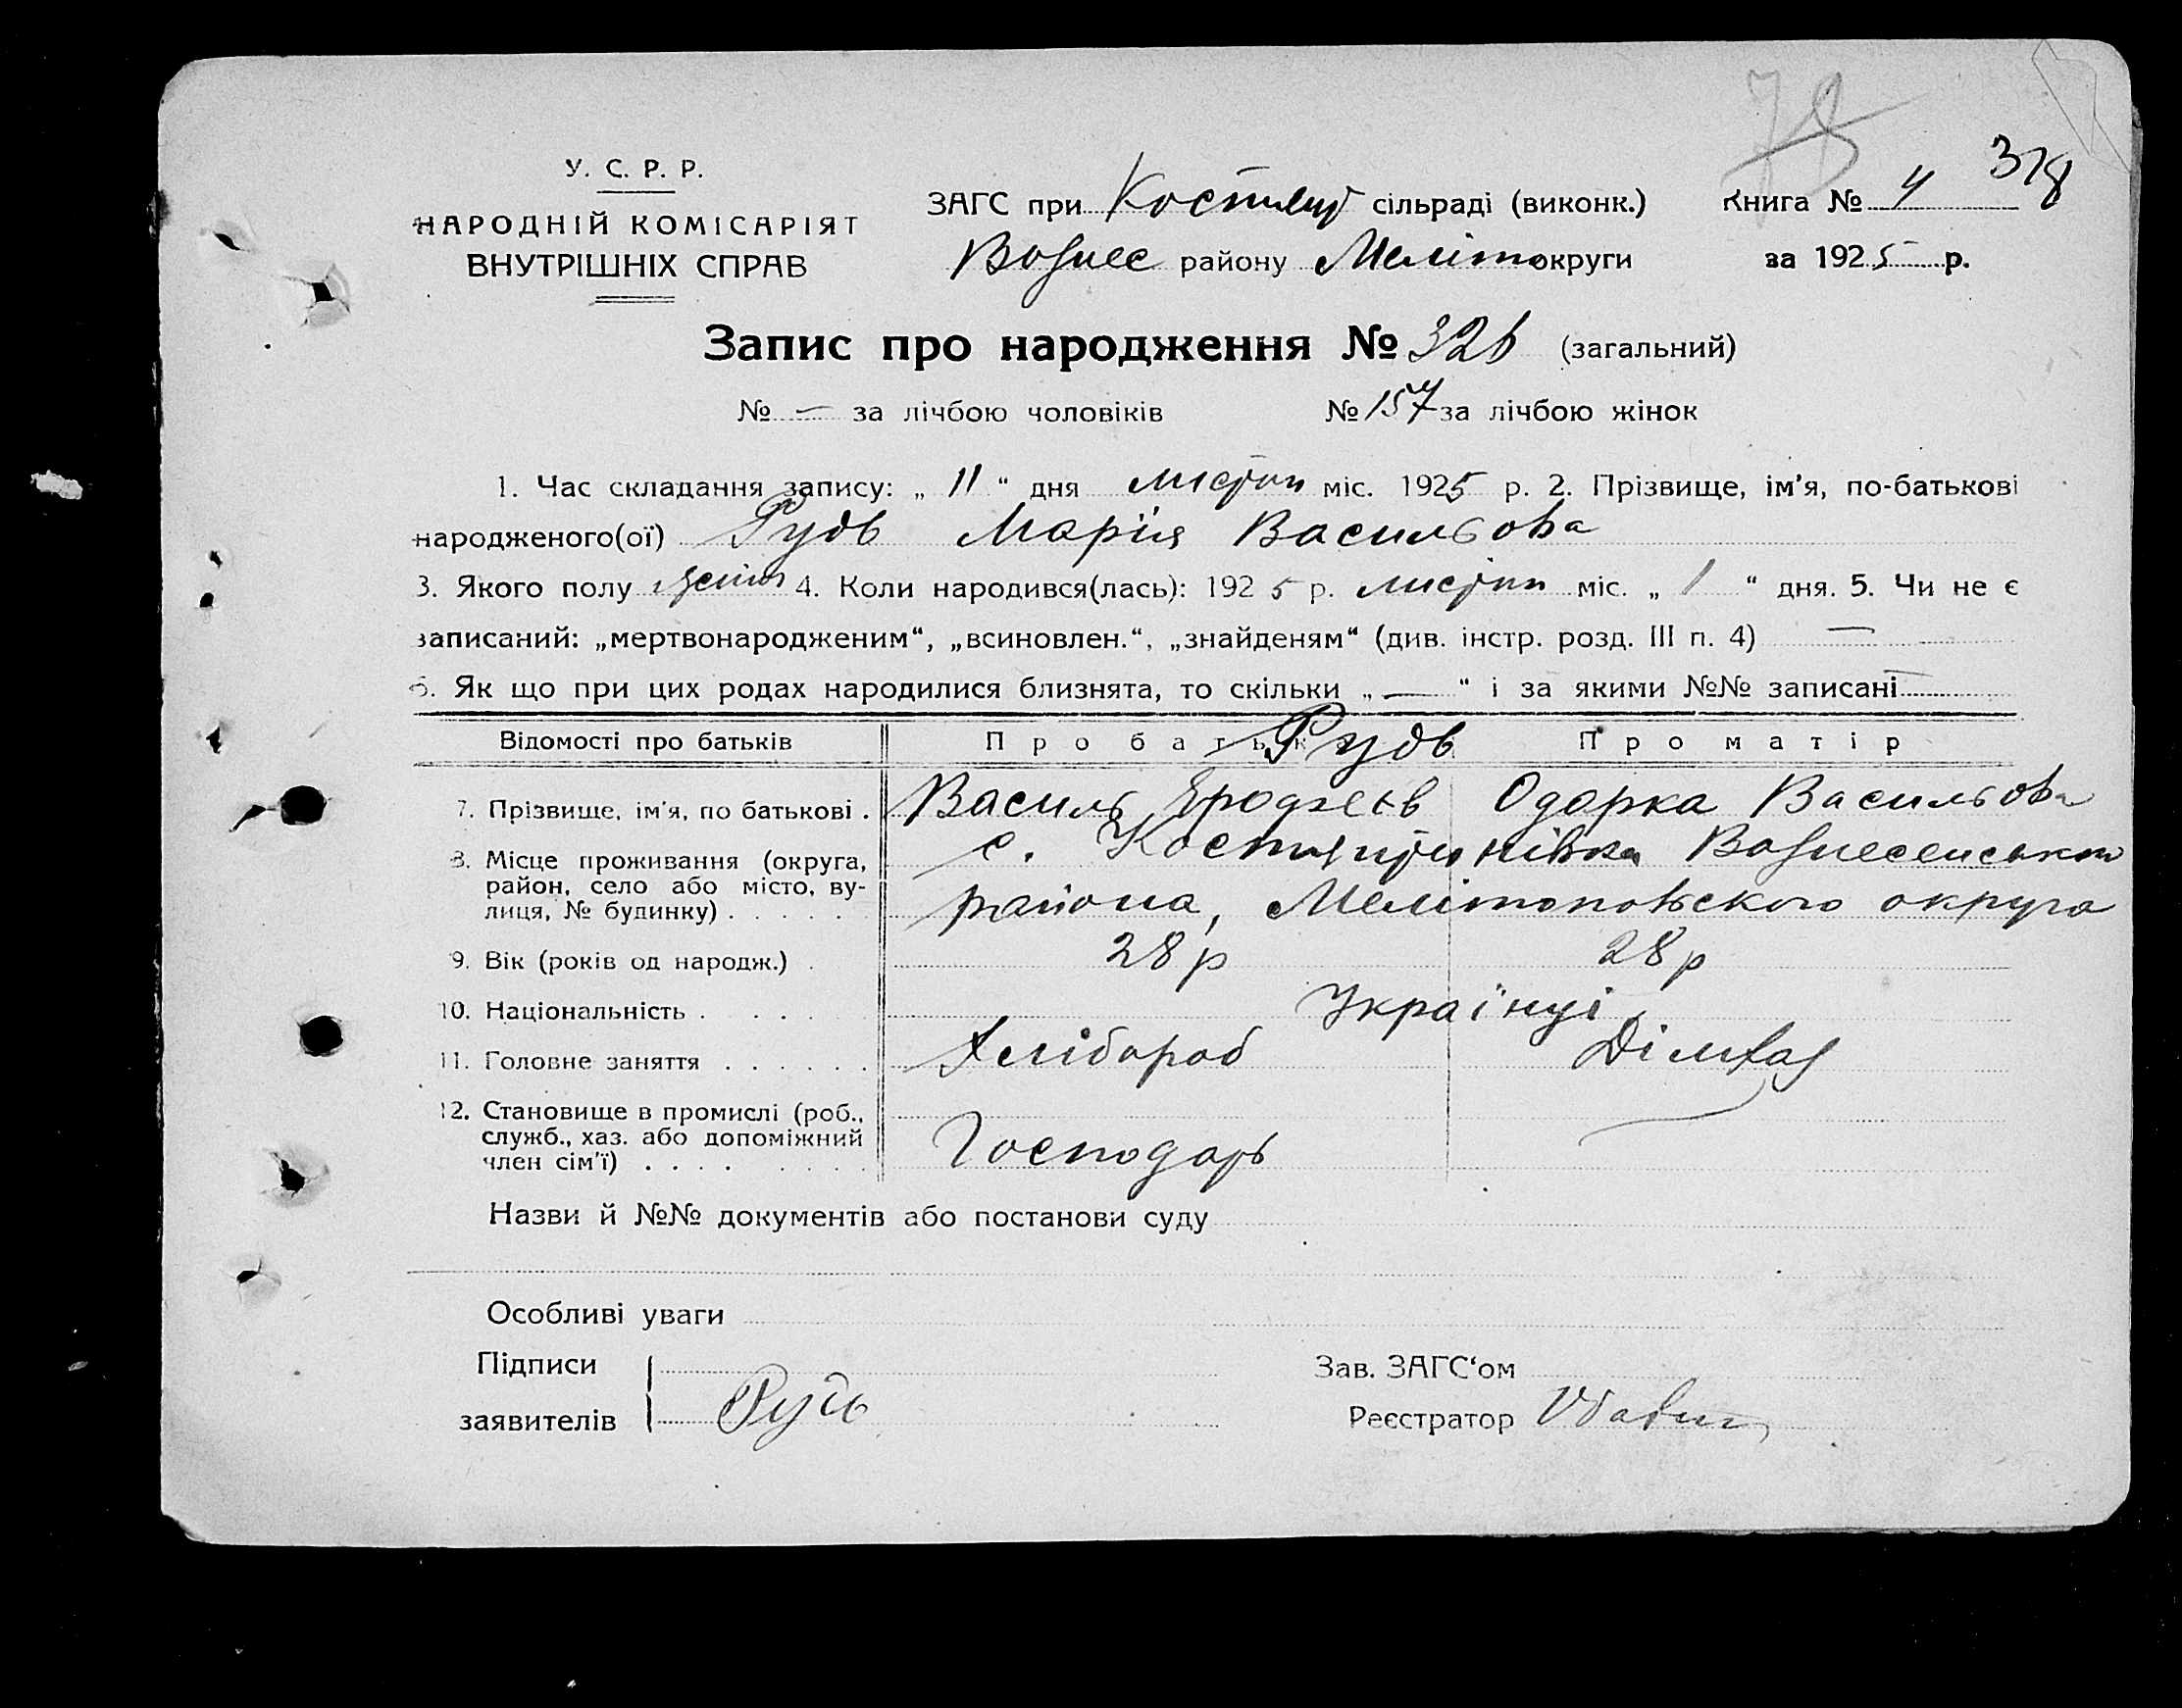 378
У. С. Р. Р.
НАРОДНІЙ КОМІСАРІЯТ
ВНУТРІШНІХ СПРАВ
ЗАГС при сільраді (виконк.) Книга № 4
Вознес району Меліто округи за 1925 р.
Запис про народження № 326 (загальний)
№ — за лічбою чоловіків № 157 за лічбою жінок
1. Час складання запису: „ 11 “ дня листоп міс. 1925 р. 2. Прізвище, ім'я, по-батькові
народженого(ої) Рудь Марія Васильова
3. Якого полу 4. Коли народився(лась): 1925 р. листоп міс. „ 1 “ дня. 5. Чи не є
записаний: „мертвонародженим“, „всиновлен.“, „знайденям“ (див. інстр. розд. III п. 4) —
6. Як що при цих родах народилися близнята, то скільки „ — “ і за якими №№ записані —
Відомості про батьків Про батька Про матір
Рудь
7. Прізвище, ім'я, по батькові . Василь Одарка Васильова
8. Місце проживання (округа, район, село або місто, вулиця, № будинку) . . . . . с. Костянтинівка Вознесенського
района, Мелітопольского округа
9. Вік (років од народж.) . 28 р 28 р
10. Національність . . . . . Українці
11. Головне заняття . . . . . . Хлібороб
12. Становище в промислі (роб., служб., хаз. або допоміжний член сім'ї) . . . . . . . . Господарь
Назви й №№ документів або постанови суду
Особливі уваги
Підписи Зав. ЗАГС‘ом
заявителів Рудь Реєстратор